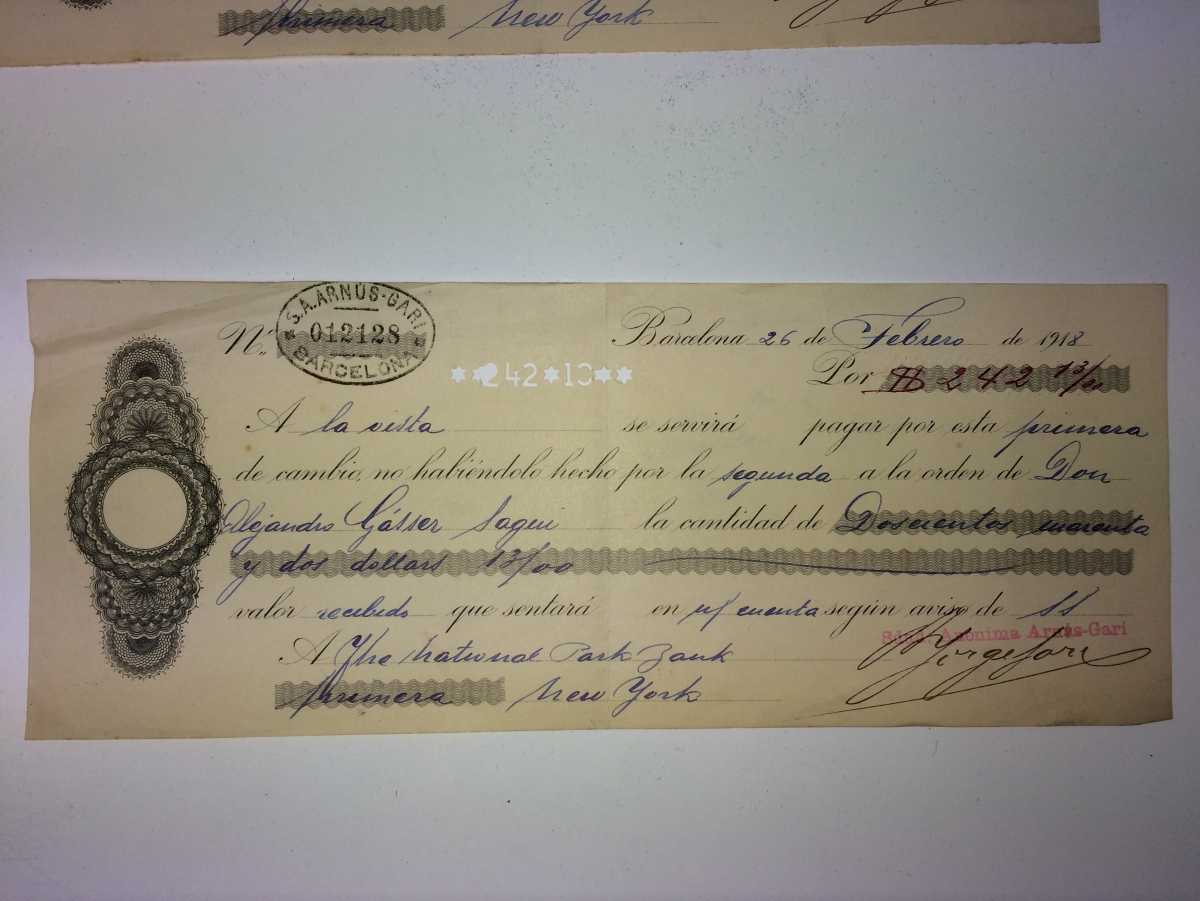 primera New York
S.A. ARNÚS-GARI
Nº. 012128
BARCELONA
Barcelona 26 de Febrero de 1918
**242*13**
Por $ 242 13/00
A la vista se servirá pagar por esta primera
de cambio, no habiéndolo hecho por la segunda a la orden de Don
Alejandro Gásser Sagui la cantidad de Doscientos cuarenta
y dos dollars 13/00
valor recibido que sentará en n/ cuenta según aviso de SS
Anónima Arnús-Gari
A The National Park Bank
primera New York